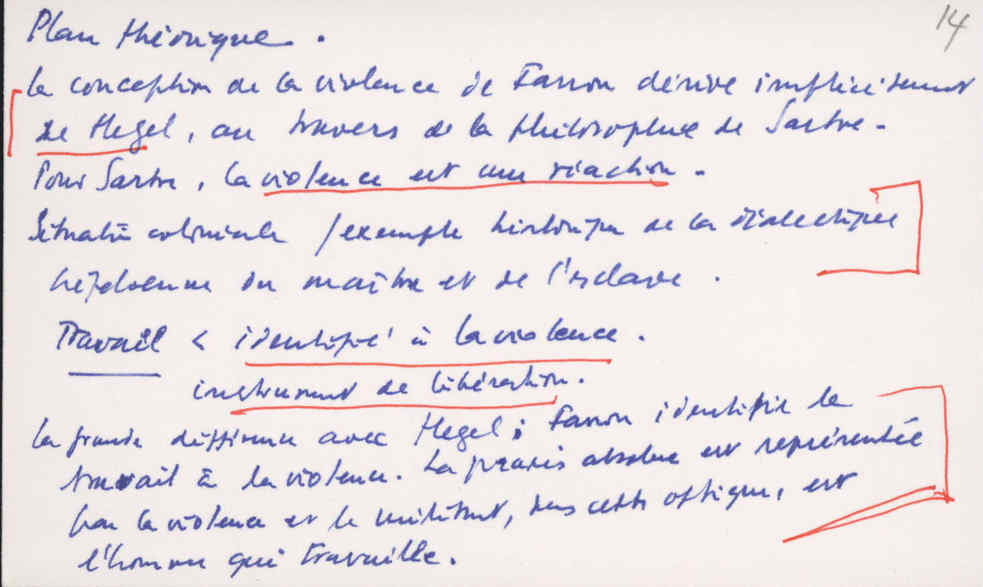 14
Plan théorique.
La conception de la violence de Fanon dérive implicitement
de Hegel, au travers de la philosophie de Sartre.
Pour Sartre, la violence est une réaction.
Situation coloniale / exemple historique de la dialectique
hégélienne du maître et de l'esclave.
Travail < identifié à la violence.
instrument de libération.
La grande différence avec Hegel : Fanon identifie le
travail à la violence. La praxis absolue est représentée
par la violence et le militant, dans cette optique, est
l'homme qui travaille.